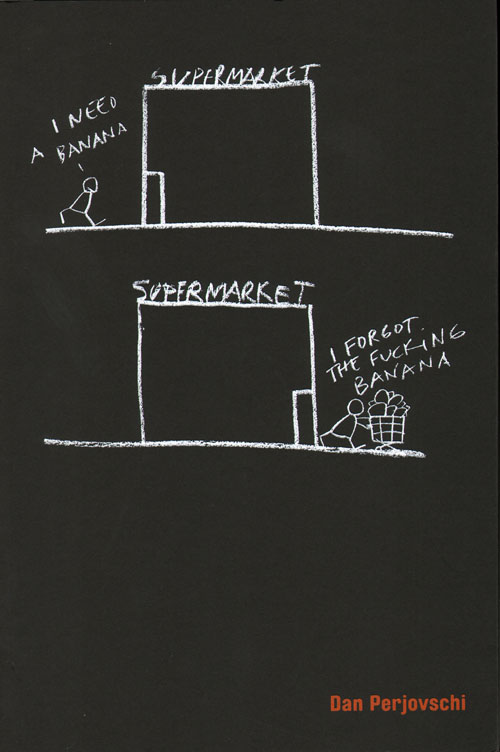 SUPERMARKET
I NEED
A BANANA
SUPERMARKET
I FORGOT.
THE FUCKING
BANANA
Dan Perjovschi